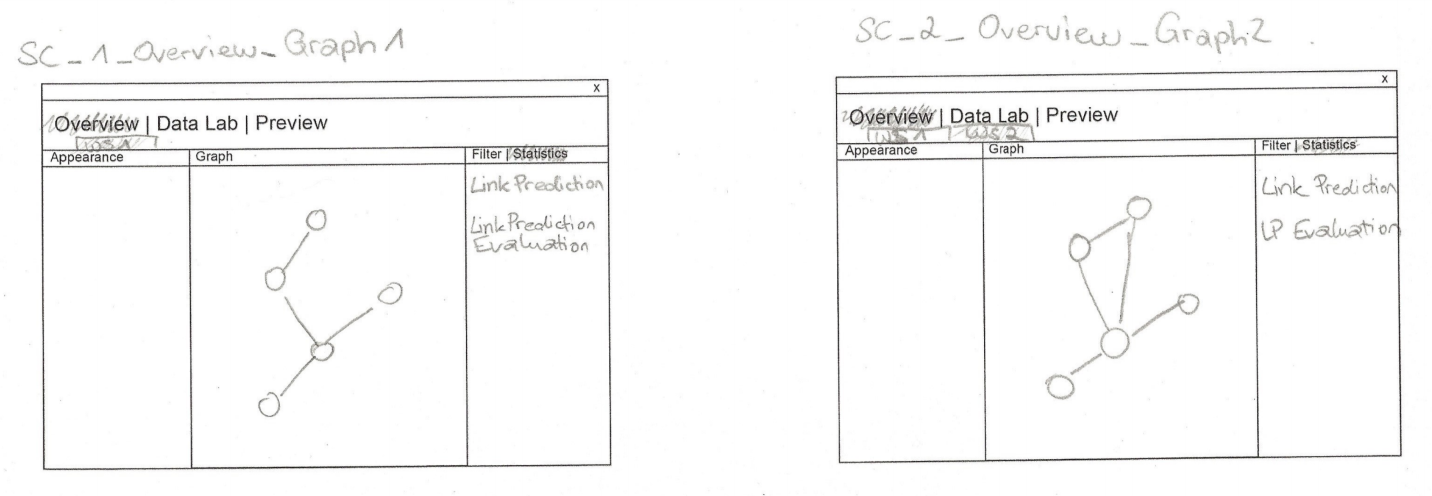 SC_1_Overview_Graph1
X
Overview | Data Lab | Preview
WS1
Appearance
Graph
Filter | Statistics
Link Prediction
Link Prediction
Evaluation
SC_2_Overview_Graph2
X
Overview | Data Lab | Preview
WS1 WS2
Appearance
Graph
Filter | Statistics
Link Prediction
LP Evaluation